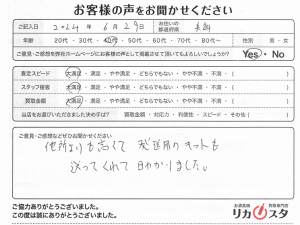 お客様の声をお聞かせください
ご記入日 2024年 6月 29日 お住いの都道府県
年齢 20代・30代・40代・50代・60代・70代・80代〜 性別 男・女
ご意見・ご感想を弊社ホームページにお客様の声として掲載させて頂いてもよろしいでしょうか? Yes・No
査定スピード 大満足・満足・やや満足・どちらでもない・やや不満・不満・( )
スタッフ接客 大満足・満足・やや満足・どちらでもない・やや不満・不満・( )
買取金額 大満足・満足・やや満足・どちらでもない・やや不満・不満・( )
当店をお選びいただきました決め手は? 買取金額・対応力・利便性・スピード・その他( )
ご意見・ご感想などぜひお聞かせください
他所よりも高くて 発送用のキットも
送ってくれて助かりました。
ご協力ありがとうございました。
この度は誠にありがとうございました。
お酒高価買取専門店
リカスタ